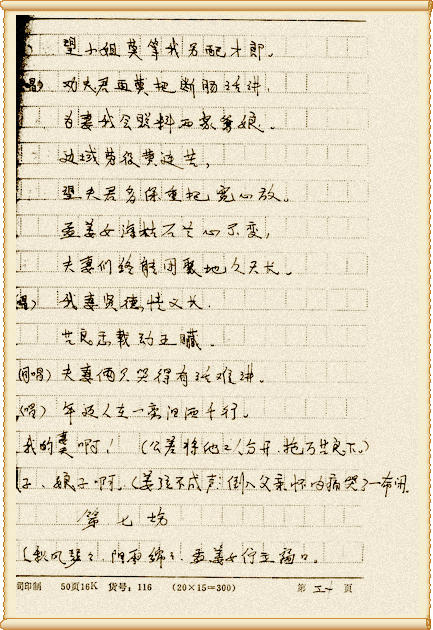 望小姐莫等我另配才郎。
唱）劝夫君再莫把断肠话讲，
为妻我会照料两家爹娘。
边域劳役黄连苦，
望夫君多保重把宽心放。
孟姜女海枯石烂心不变，
夫妻们终能团聚地久天长。
唱）我妻贤德情义长，
共良感载动五臟。
同唱）夫妻俩只哭得有话难讲。
（唱）年迈人在一旁泪洒千行。
我的妻啊！（公差将他二人分开，拖万共良下。）
子、娘子啊。（姜泣不成声，倒入父亲怀内痛哭）
第七场
（秋风瑟瑟，阴雨绵绵，孟姜女伫立窗口。
司印制 50页16K 货号：116 （20×15=300） 第 五十 页